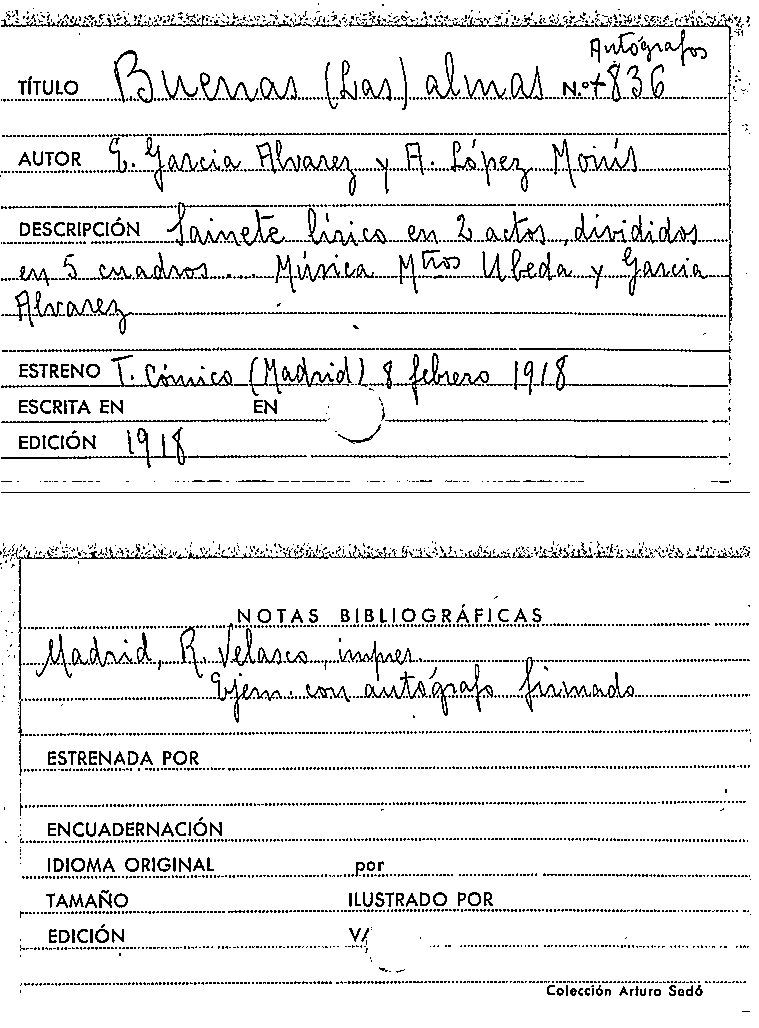 Autógrafos
TÍTULO Buenas (Las) almas N.º + 836
AUTOR E. Garcia Alvarez y A. López Monís
DESCRIPCIÓN Sainete lírico en 2 actos, divididos
en 5 cuadros.... Música Mtros Ubeda y Garcia
Alvarez
ESTRENO T. Cómico (Madrid) 8 febrero 1918
ESCRITA EN EN
EDICIÓN 1918
NOTAS BIBLIOGRÁFICAS
Madrid, R. Velasco, impres.
Ejem. con autógrafo firmado
ESTRENADA POR
ENCUADERNACIÓN
IDIOMA ORIGINAL por
TAMAÑO ILUSTRADO POR
EDICIÓN V/
Colección Arturo Sedó